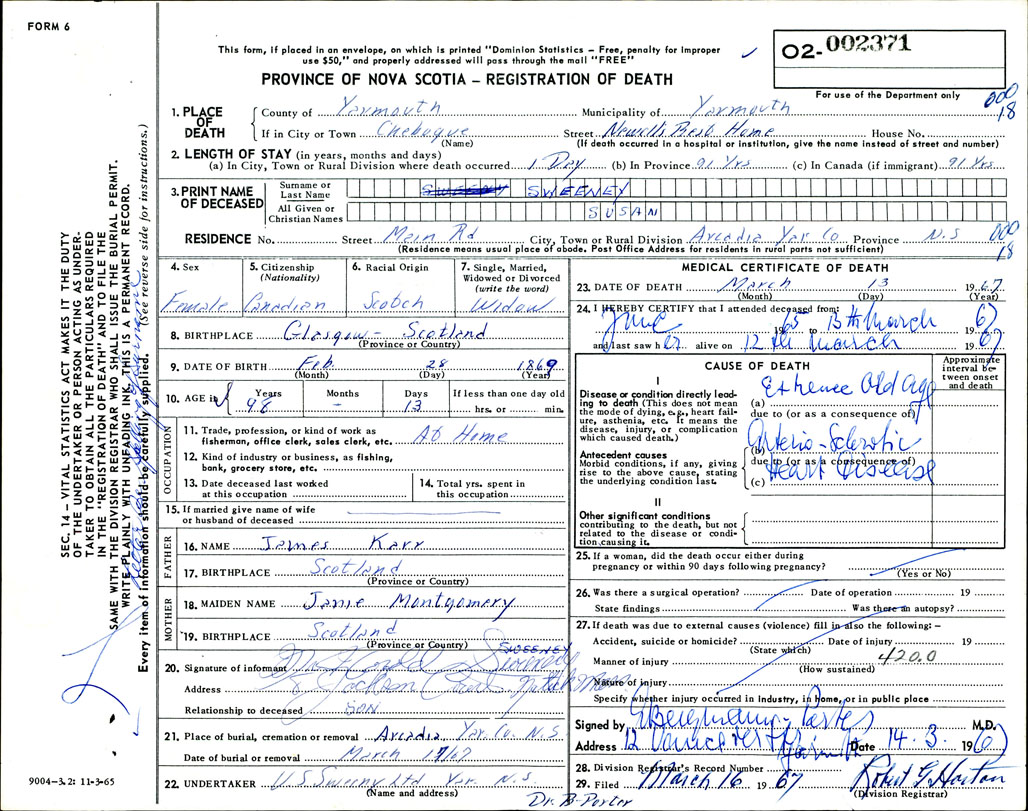 FORM 6
This form, if placed in an envelope, on which is printed "Dominion Statistics – Free, penalty for improper
use $50," and properly addressed will pass through the mail "FREE"
02-002371
For use of the Department only
PROVINCE OF NOVA SCOTIA – REGISTRATION OF DEATH
000
18
1. PLACE OF DEATH
County of Yarmouth Municipality of Yarmouth
If in City or Town Chebogue Street Newells Rest Home House No.
(Name) (If death occurred in a hospital or institution, give the name instead of street and number)
2. LENGTH OF STAY (in years, months and days)
(a) In City, Town or Rural Division where death occurred 1 Day (b) In Province 91 Yrs (c) In Canada (if immigrant) 91 Yrs
3. PRINT NAME OF DECEASED
Surname or Last Name SWEENEY
All Given or Christian Names SUSAN
RESIDENCE No. Street Main Rd City, Town or Rural Division Arcadia Yar Co. Province N.S
(Residence means usual place of abode. Post Office Address for residents in rural parts not sufficient)
000
18
4. Sex
Female
5. Citizenship
(Nationality)
Canadian
6. Racial Origin
Scotch
7. Single, Married,
Widowed or Divorced
(write the word)
Widow
8. BIRTHPLACE Glasgow – Scotland
(Province or Country)
9. DATE OF BIRTH Feb. 28 1869
(Month) (Day) (Year)
10. AGE in Years Months Days If less than one day old
98 – 13 hrs. or min.
OCCUPATION
11. Trade, profession, or kind of work as
fisherman, office clerk, sales clerk, etc. At Home
12. Kind of industry or business, as fishing,
bank, grocery store, etc.
13. Date deceased last worked
at this occupation
14. Total yrs. spent in
this occupation
15. If married give name of wife
or husband of deceased
FATHER
16. NAME James Karr
17. BIRTHPLACE Scotland
(Province or Country)
MOTHER
18. MAIDEN NAME Janie Montgomery
19. BIRTHPLACE Scotland
(Province or Country)
SWEENEY
20. Signature of informant
Address
Relationship to deceased SON
21. Place of burial, cremation or removal Arcadia Yar. Co. N.S.
Date of burial or removal March
22. UNDERTAKER Sweeny Ltd Yar. N.S.
(Name and address)
MEDICAL CERTIFICATE OF DEATH
23. DATE OF DEATH March 13 1967
(Month) (Day) (Year)
24. I HEREBY CERTIFY that I attended deceased from:
June 1965 to 13th March 1967
and last saw her alive on 12th March 1967
CAUSE OF DEATH
Approximate interval between onset and death
I
Disease or condition directly leading to death (This does not mean the mode of dying, e.g., heart failure, asthenia, etc. It means the disease, injury, or complication which caused death.)
(a) Old Age
due to (or as a consequence of)
Antecedent causes
Morbid conditions, if any, giving rise to the above cause, stating the underlying condition last.
(b) Arterio-Sclerotic
due to (or as a consequence of)
(c) Heart Disease
II
Other significant conditions
contributing to the death, but not related to the disease or condition causing it.
25. If a woman, did the death occur either during
pregnancy or within 90 days following pregnancy?
(Yes or No)
26. Was there a surgical operation? Date of operation 19
State findings Was there an autopsy?
27. If death was due to external causes (violence) fill in also the following: –
Accident, suicide or homicide? Date of injury 19
(State which)
Manner of injury 420.0
(How sustained)
Nature of injury
Specify whether injury occurred in Industry, in Home, or in public place
Signed by M.D.
Address 12 Date 14.3. 1967
28. Division Registrar's Record Number
29. Filed March 16 1967 Robert G. Horton
(Division Registrar)
Dr. B-Porter
SEC. 14 – VITAL STATISTICS ACT MAKES IT THE DUTY
OF THE UNDERTAKER OR PERSON ACTING AS UNDER-
TAKER TO OBTAIN ALL THE PARTICULARS REQUIRED
IN THE "REGISTRATION OF DEATH" AND TO FILE THE
SAME WITH THE DIVISION REGISTRAR WHO SHALL ISSUE THE BURIAL PERMIT.
WRITE PLAINLY WITH UNFADING INK, THIS IS A PERMANENT RECORD.
Every item of information should be carefully supplied. (See reverse side for instructions.)
9004-3.2: 11-3-65